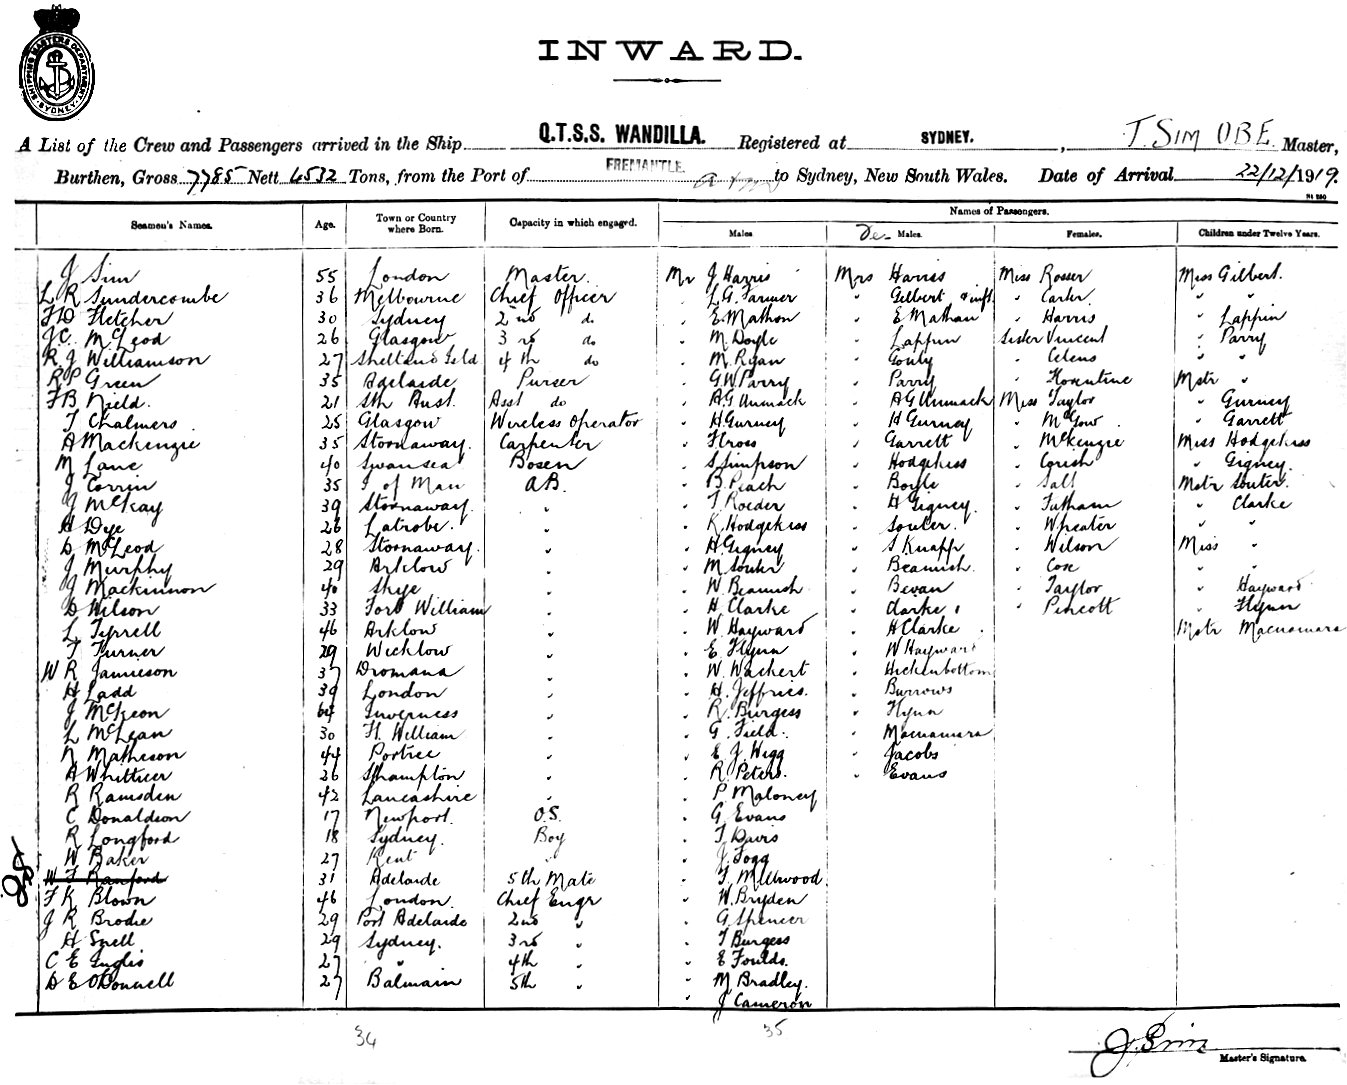 SHIPPING MASTERS DEPARTMENT SYDNEY
INWARD.
A List of the Crew and Passengers arrived in the Ship Q.T.S.S. WANDILLA. Registered at SYDNEY. , T. SIM OBE. Master,
Burthen, Gross 7785 Nett 4532 Tons, from the Port of FREMANTLE to Sydney, New South Wales. Date of Arrival 22/12/1919.
Seamen's Names. Age. Town or Country where Born. Capacity in which engaged. Names of Passengers.
Males De Males. Females. Children under Twelve Years.
J Sim 55 London Master. Mr J Harris Mrs Harris Miss Rosser Miss Gilbert.
L R Sundercombe 36 Melbourne Chief Officer " L.G. Farmer " Gilbert & inft " Carter " "
F D Fletcher 30 Sydney 2nd do " E Mathon " E Mathan " Harris " Lappin
J C. McLeod 26 Glasgow 3rd do " M Doyle " Lappin Sister Vincent " Parry
R J Williamson 27 Shetland Isld 4th do " M Ryan " Gouly " Celeus " "
R P Green 35 Adelaide Purser " G.W. Parry " Parry " Florentine Mstr "
F B Nield. 21 Sth Aust. Asst do " A.G. Unmack " A G Unmack Miss Taylor " Gurney
T Chalmers 25 Glasgow Wireless Operator " H. Gurney " H Gurney " McGow " Garrett
A Mackenzie 35 Stornaway. Carpenter " F Cross " Garrett " McKenzie Miss Hodgekiss
M Lane 40 Swansea Bosen " S Simpson " Hodgekiss " Corish " Gigney.
J Corrin 35 I of Man A.B. " B. Peach " Boyle " Salt Mstr Souter.
J McKay 39 Stornaway. " " T. Roeder " H Gigney. " Tatham " Clarke
H Dye 26 Latrobe. " " K. Hodgekiss " Souter. " Wheater " "
D McLeod 28 Stornaway. " " H. Gigney " S Knapp " Wilson Miss "
J Murphy 29 Arklow " " M Souter " Beamish. " Cox " "
J Mackinnon 40 Skye " " W. Beamish " Bevan " Taylor " Hayward
D Wilson 33 Fort William " " H. Clarke " Clarke " Pincott " Flynn
L Tyrrell 46 Arklow " " W. Hayward " H Clarke Mstr Macnamara
T Turner 29 Wicklow " " E Flynn " W Hayward
W R Jamieson 37 Dromana " " W. Wachert " Hickinbottom
H Ladd 39 London " " H. Jeffries. " Burrows
J McKeon 64 Inverness " " R. Burgess " Flynn
L McLean 30 Ft. William " " G Field. " Macnamara
N Matheson 44 Portree " " E J. Wigg " Jacobs
A Whittier 26 S'hampton " " R Peters. " Evans
R Ramsden 42 Lancashire " " P Maloney
C Donaldson 17 Newport. O.S. " G. Evans
R Longford 18 Sydney. Boy " T Davis
W Baker 27 Kent " " J. Fogg
W F Ranford 31 Adelaide 5th Mate " F. Millwood
F K Blown 46 London. Chief Engr " W. Bryden
J R Brodie 29 Port Adelaide 2nd " " G Spencer
H Snell 29 Sydney. 3rd " " T Burgess
C E Inglis 27 " 4th " " E Foulds.
D E O'Donnell 27 Balmain 5th " " M Bradley.
" J Cameron
34 35
J. Sim
Master's Signature.